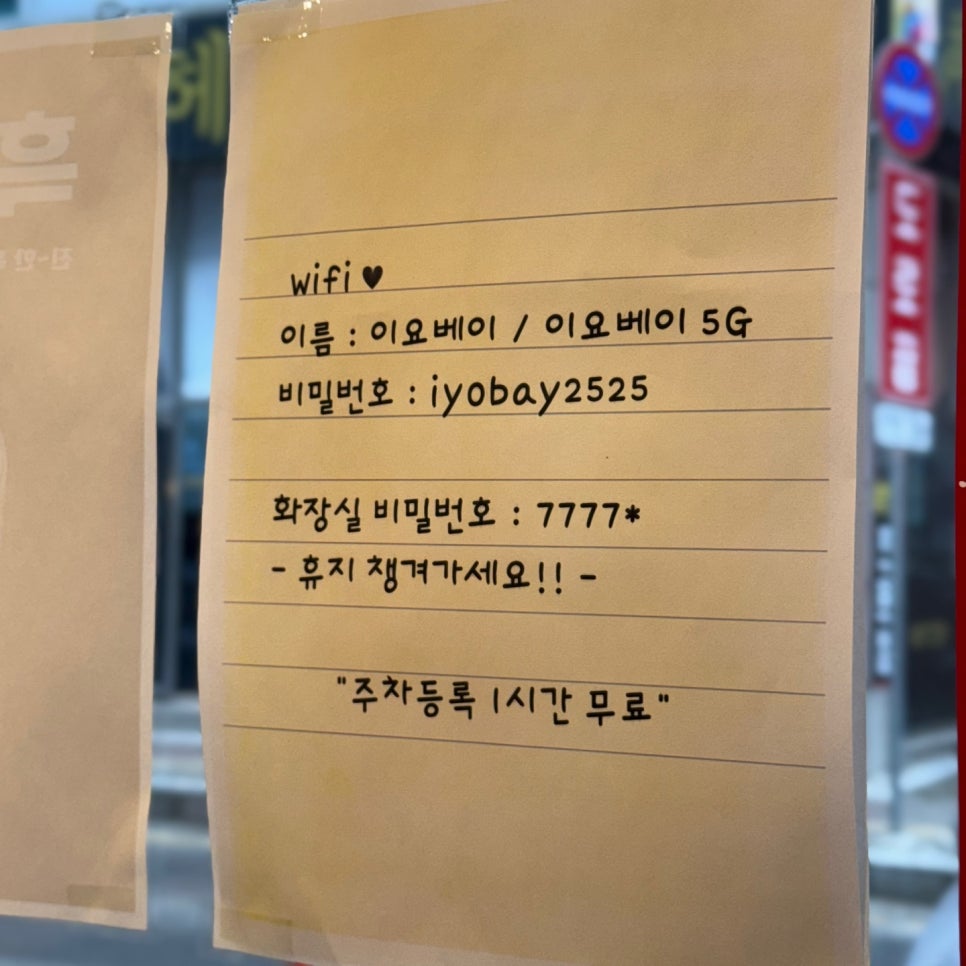 wifi ♥
이름 : 이요베이 / 이요베이 5G
비밀번호 : iyobay2525
화장실 비밀번호 : 7777*
- 휴지 챙겨가세요!! -
"주차등록 1시간 무료"